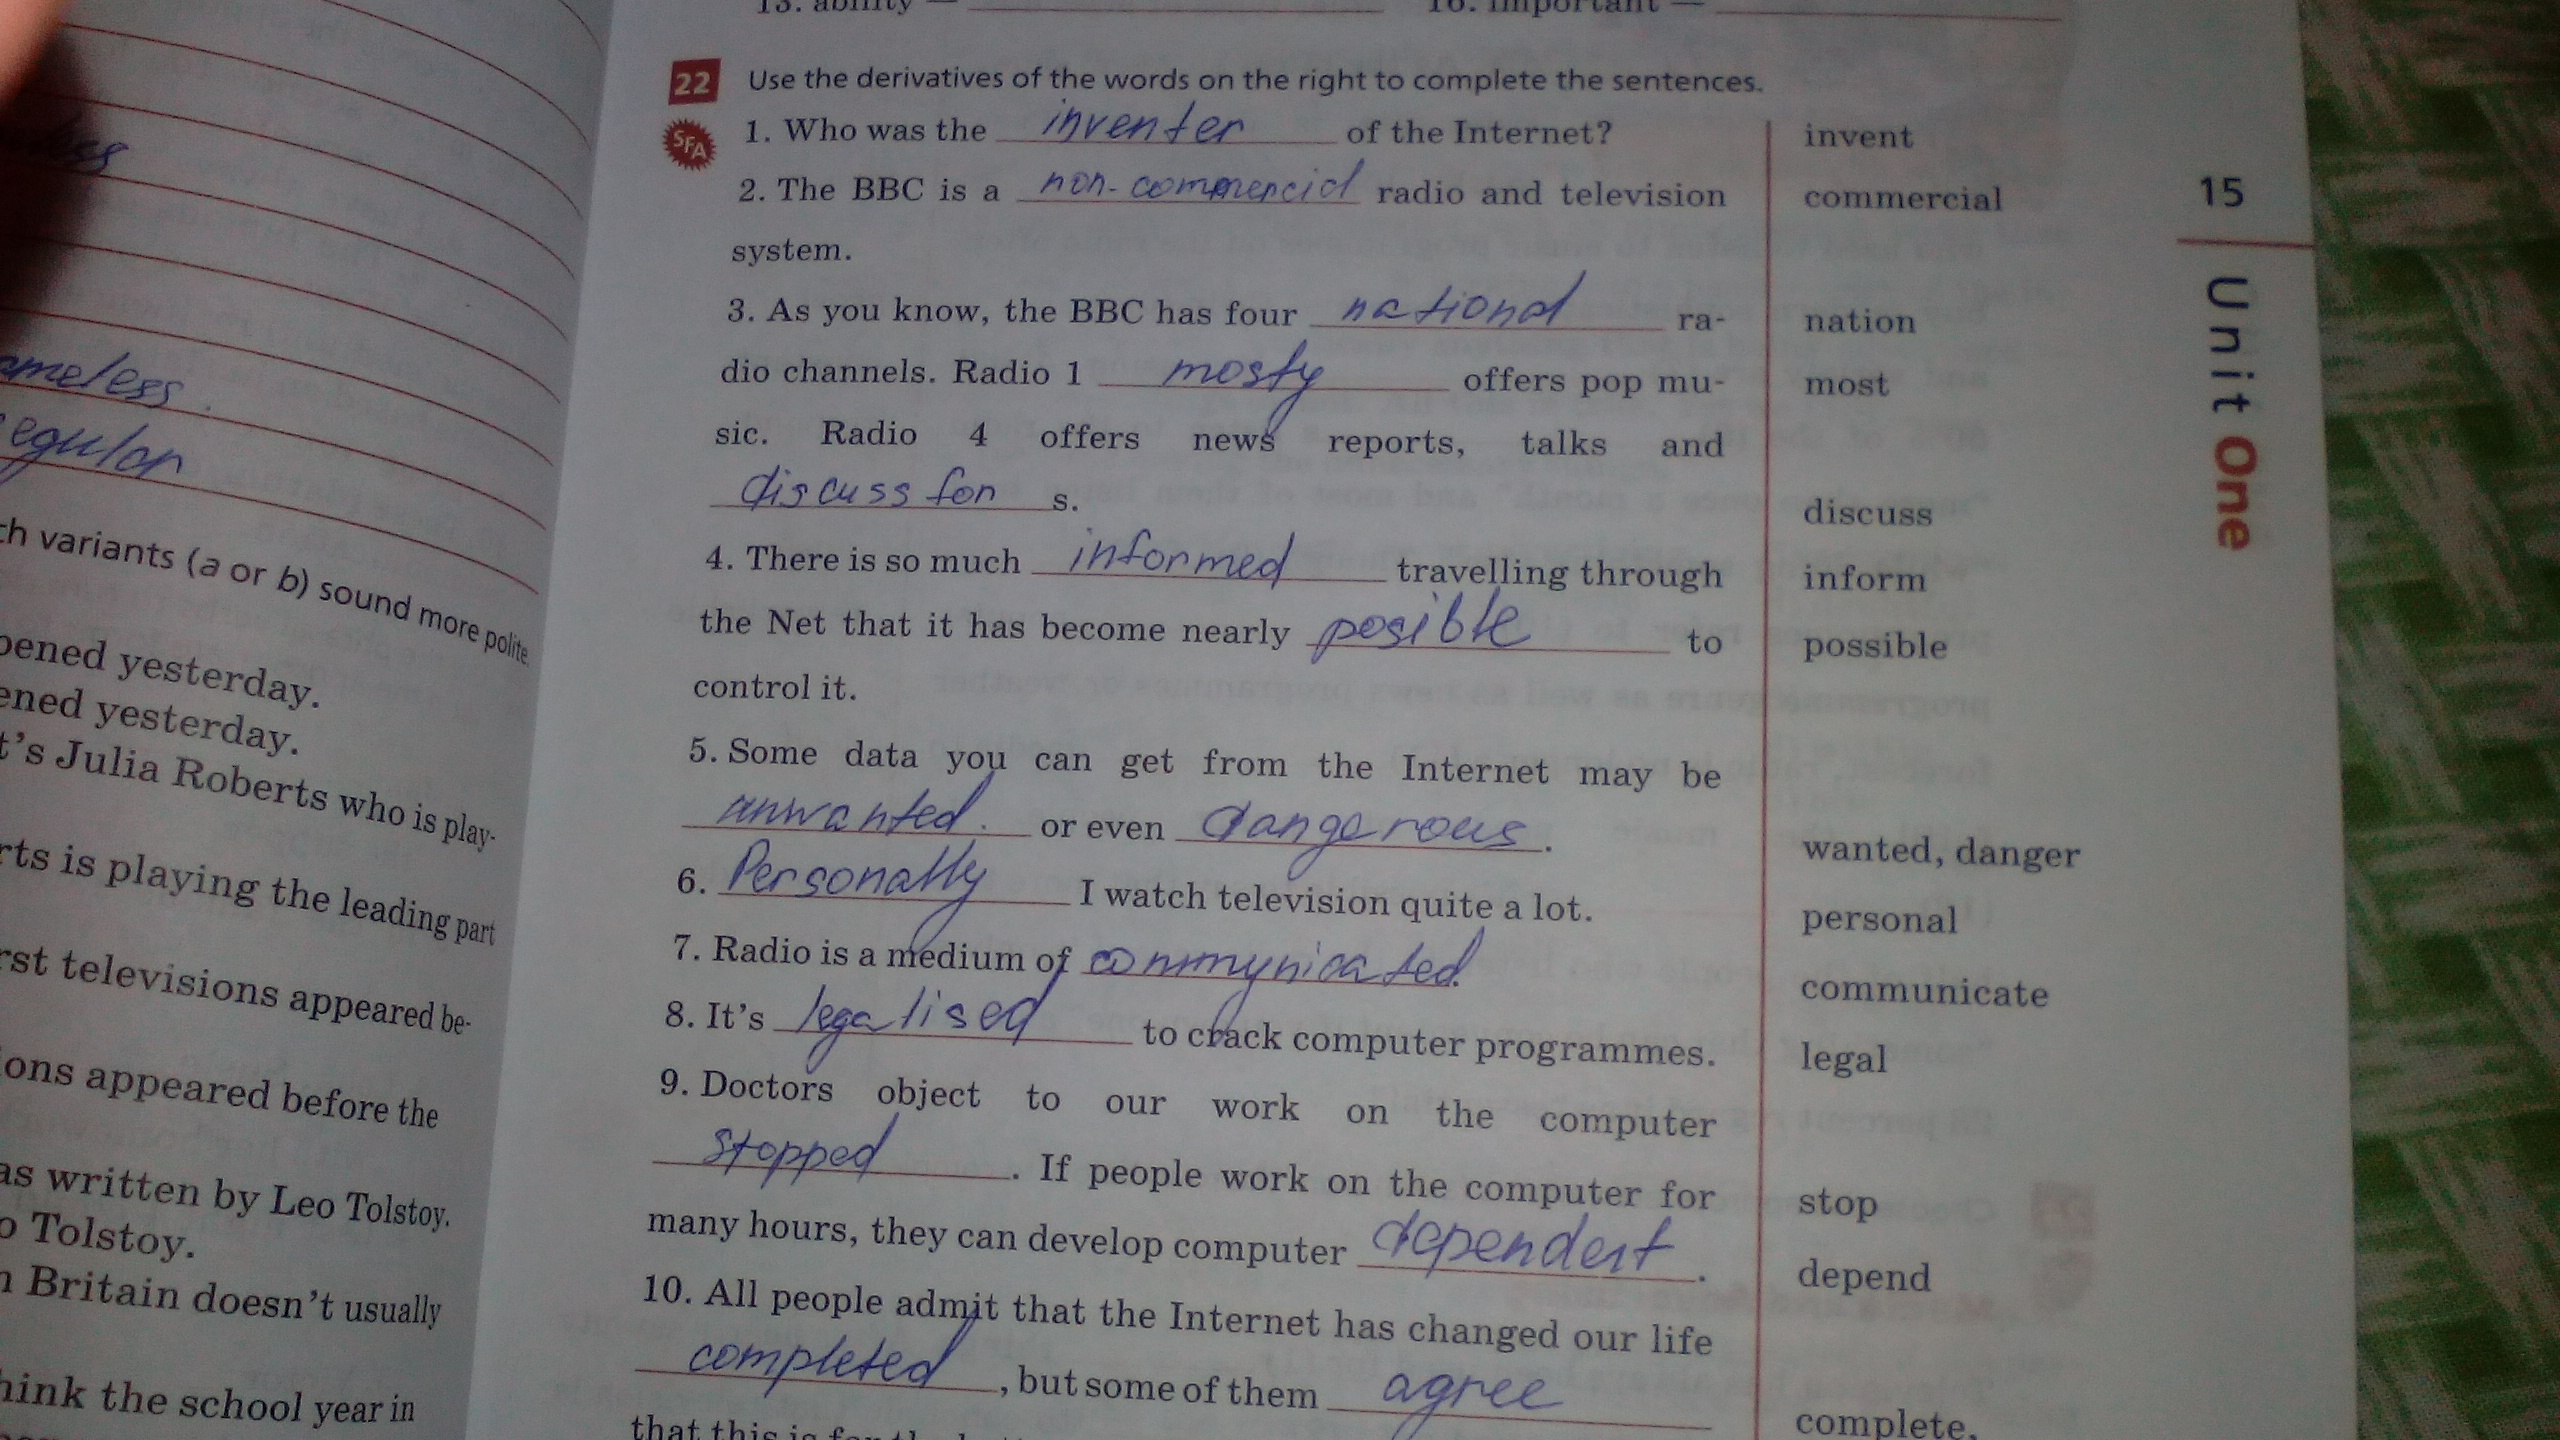 13. ability — 16. important —
22 Use the derivatives of the words on the right to complete the sentences.
SFA
1. Who was the inventer of the Internet? invent
2. The BBC is a non-commercial radio and television commercial
system.
3. As you know, the BBC has four national ra- nation
dio channels. Radio 1 mosty offers pop mu- most
sic. Radio 4 offers news reports, talks and
discussion s. discuss
4. There is so much informed travelling through inform
the Net that it has become nearly posible to possible
control it.
5. Some data you can get from the Internet may be
unwanted. or even dangerous. wanted, danger
6. Personally I watch television quite a lot. personal
7. Radio is a medium of communicated. communicate
8. It's legalised to crack computer programmes. legal
9. Doctors object to our work on the computer
stopped. If people work on the computer for stop
many hours, they can develop computer dependent. depend
10. All people admit that the Internet has changed our life
completed, but some of them agree complete,
that this is
15
Unit One
ameless.
egular
ch variants (a or b) sound more polite.
pened yesterday.
ened yesterday.
t's Julia Roberts who is play-
rts is playing the leading part
rst televisions appeared be-
ons appeared before the
as written by Leo Tolstoy.
o Tolstoy.
n Britain doesn't usually
hink the school year in